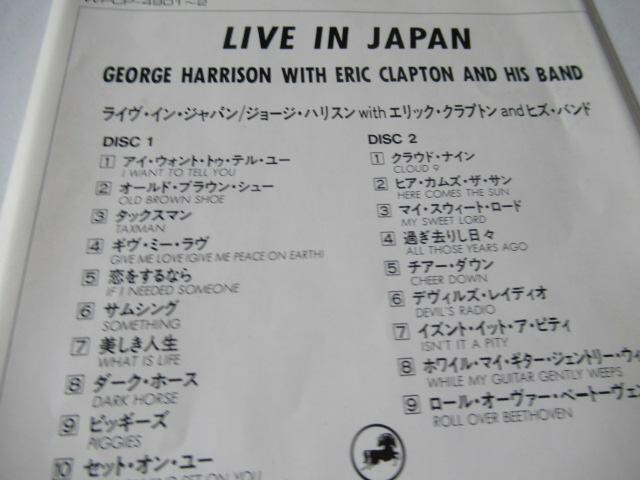 WPCP-4801~2
LIVE IN JAPAN
GEORGE HARRISON WITH ERIC CLAPTON AND HIS BAND
ライヴ・イン・ジャパン/ジョージ・ハリスン with エリック・クラプトン and ヒズ・バンド
DISC 1
1 アイ・ウォント・トゥ・テル・ユー
I WANT TO TELL YOU
2 オールド・ブラウン・シュー
OLD BROWN SHOE
3 タックスマン
TAXMAN
4 ギヴ・ミー・ラヴ
GIVE ME LOVE (GIVE ME PEACE ON EARTH)
5 恋をするなら
IF I NEEDED SOMEONE
6 サムシング
SOMETHING
7 美しき人生
WHAT IS LIFE
8 ダーク・ホース
DARK HORSE
9 ピッギーズ
PIGGIES
10 セット・オン・ユー
SET ON YOU
DISC 2
1 クラウド・ナイン
CLOUD 9
2 ヒア・カムズ・ザ・サン
HERE COMES THE SUN
3 マイ・スウィート・ロード
MY SWEET LORD
4 過ぎ去りし日々
ALL THOSE YEARS AGO
5 チアー・ダウン
CHEER DOWN
6 デヴィルズ・レイディオ
DEVIL'S RADIO
7 イズント・イット・ア・ピティ
ISN'T IT A PITY
8 ホワイル・マイ・ギター・ジェントリー・ウィ
WHILE MY GUITAR GENTLY WEEPS
9 ロール・オーヴァー・ベートーヴェン
ROLL OVER BEETHOVEN